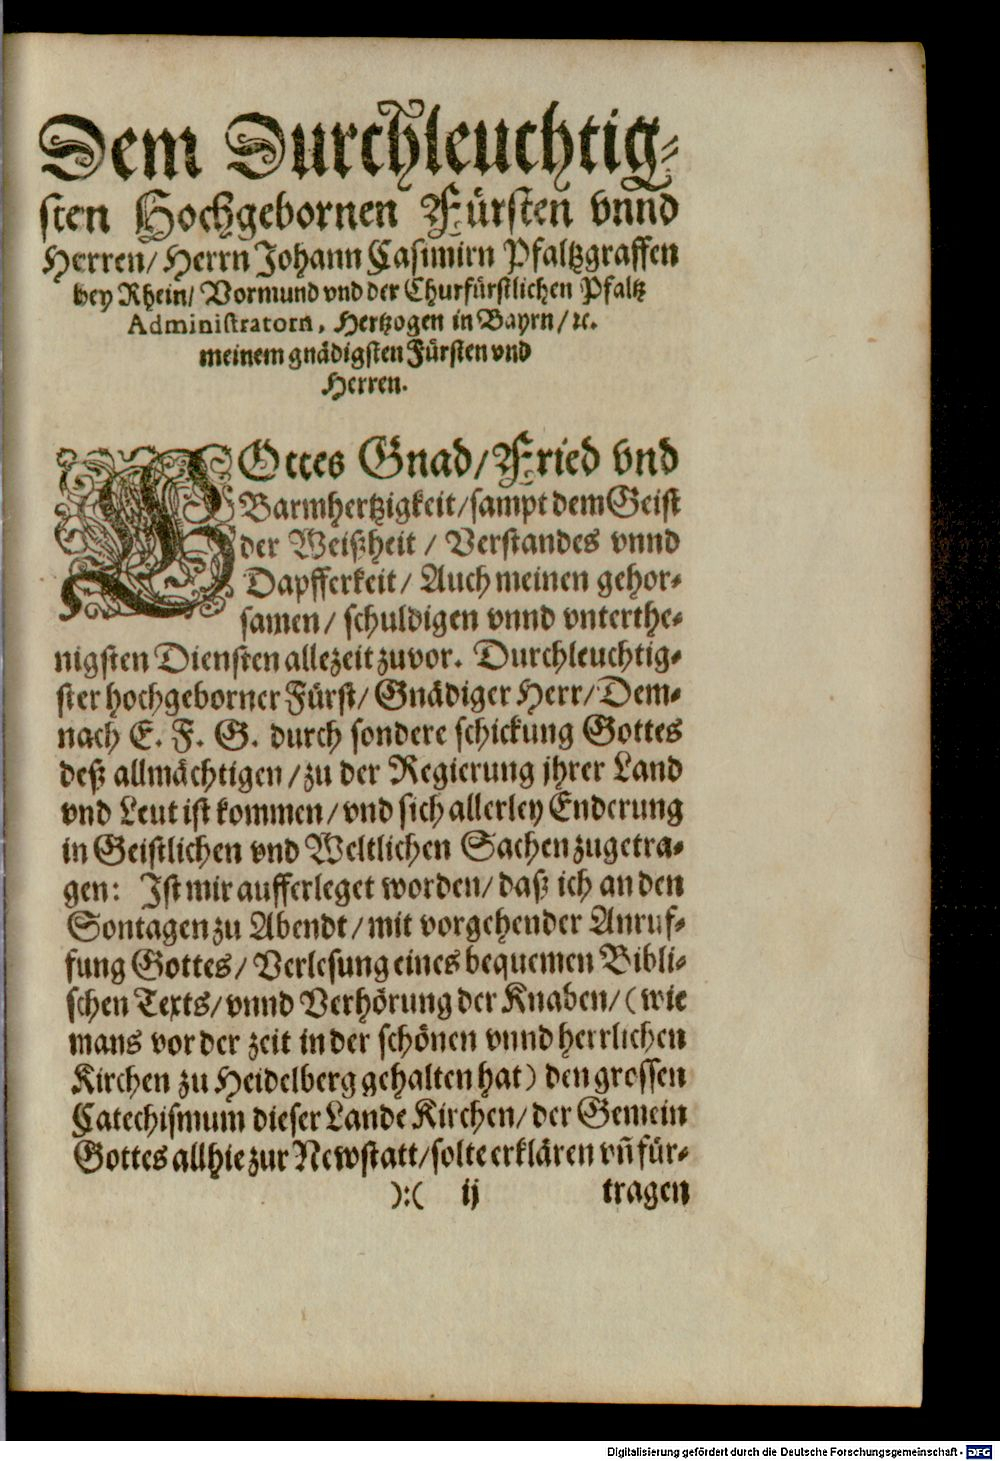 Dem Durchleuchtig-
sten Hochgebornen Fürsten vnnd
Herren/ Herrn Johann Casimirn Pfaltzgraffen
bey Rhein/ Vormund vnd der Churfürstlichen Pfaltz
Administratorn, Hertzogen in Bayrn/ ꝛc.
meinem gnädigsten Fürsten vnd
Herren.
GOttes Gnad/ Fried vnd
Barmhertzigkeit/ sampt dem Geist
der Weißheit / Verstandes vnnd
Dapfferkeit/ Auch meinen gehor-
samen/ schuldigen vnnd vnterthe-
nigsten Diensten allezeit zuvor. Durchleuchtig-
ster hochgeborner Fürst/ Gnädiger Herr/ Dem-
nach E. F. G. durch sondere schickung Gottes
deß allmächtigen/ zu der Regierung jhrer Land
vnd Leut ist kommen/ vnd sich allerley Enderung
in Geistlichen vnd Weltlichen Sachen zugetra-
gen: Ist mir aufferleget worden/ daß ich an den
Sontagen zu Abendt/ mit vorgehender Anruf-
fung Gottes/ Verlesung eines bequemen Bibli-
schen Texts/ vnnd Verhörung der Knaben/ (wie
mans vor der zeit in der schönen vnnd herrlichen
Kirchen zu Heidelberg gehalten hat) den grossen
Catechismum dieser Lande Kirchen/ der Gemein
Gottes allhie zur Newstatt/ solte erklären vñ für-
):( ij tragen
Digitalisierung gefördert durch die Deutsche Forschungsgemeinschaft - DFG